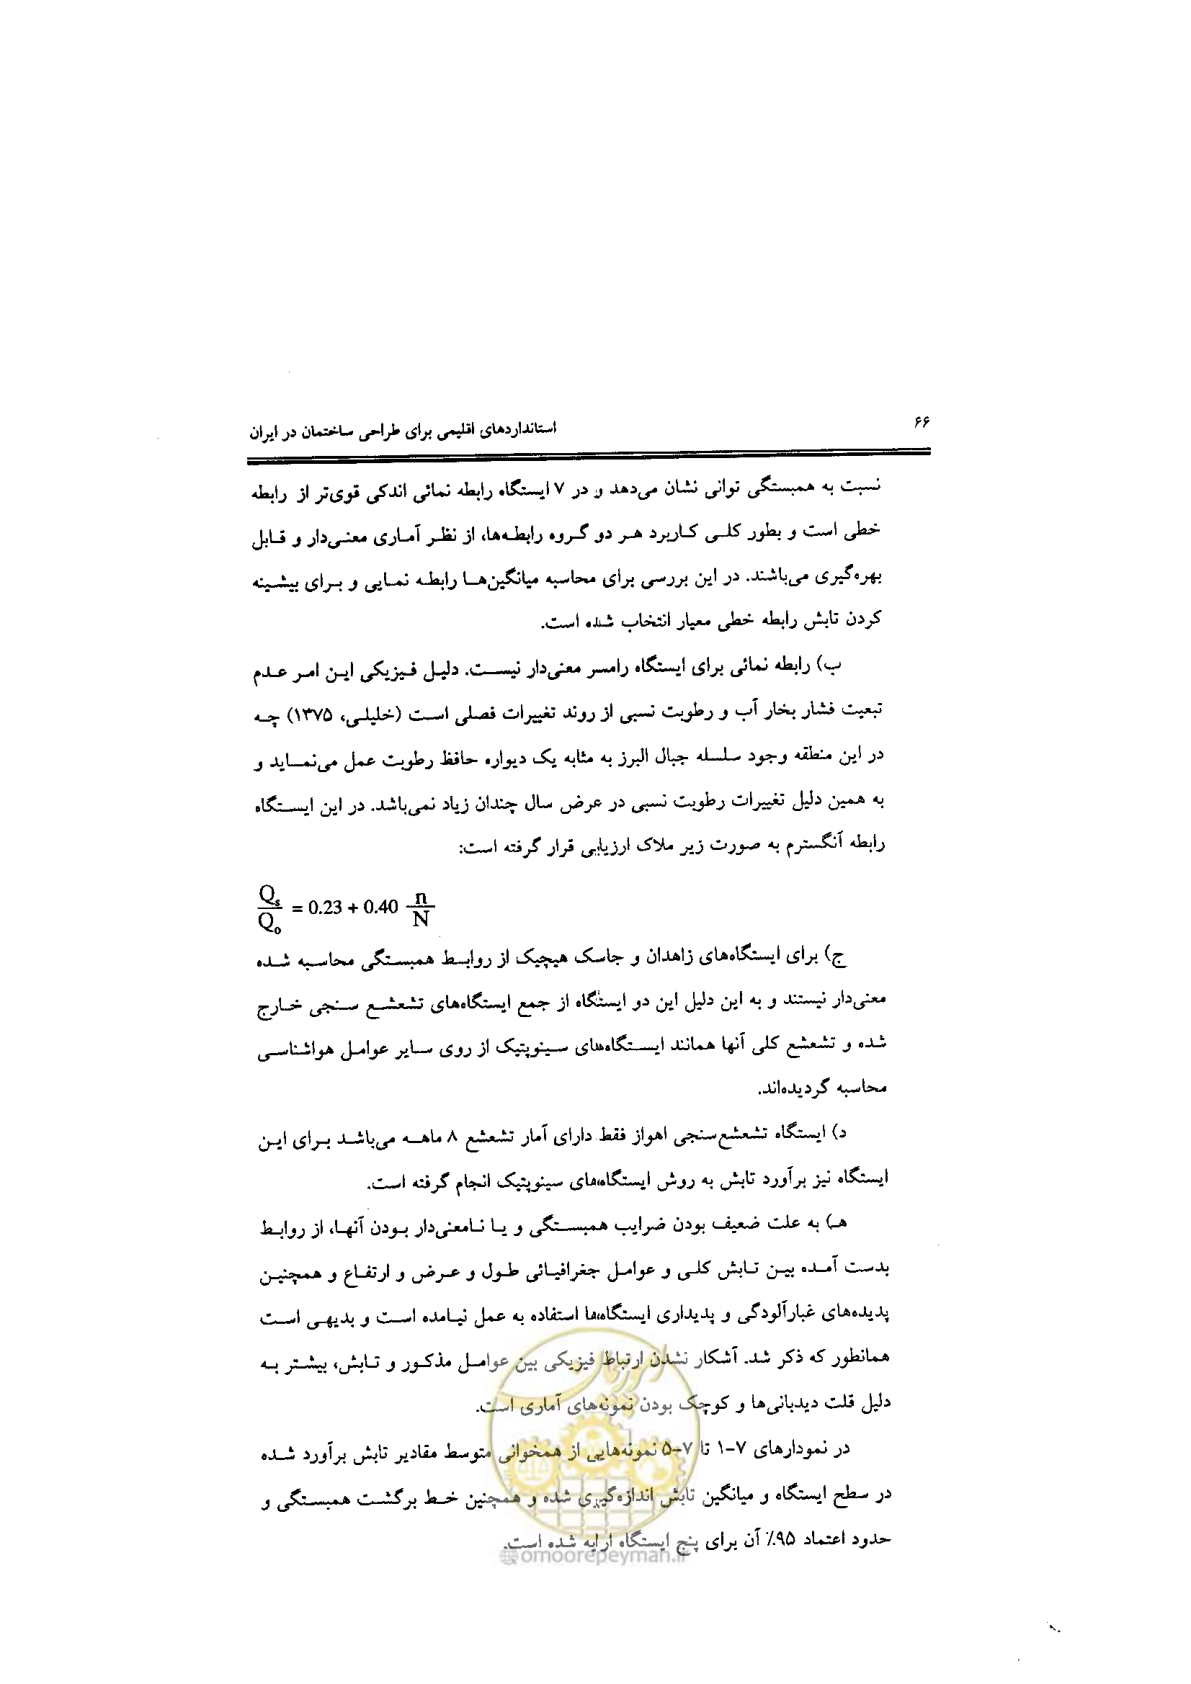 ۶۶
استانداردهای اقلیمی برای طراحی ساختمان در ایران
نسبت به همبستگی توانی نشان می‌دهد و در ۷ ایستگاه رابطه نمائی اندکی قوی‌تر از رابطه
خطی است و بطور کلی کاربرد هر دو گروه رابطه‌ها، از نظر آماری معنی‌دار و قابل
بهره‌گیری می‌باشند. در این بررسی برای محاسبه میانگین‌ها رابطه نمایی و برای بیشینه
کردن تابش رابطه خطی معیار انتخاب شده است.
ب) رابطه نمائی برای ایستگاه رامسر معنی‌دار نیست. دلیل فیزیکی این امر عدم
تبعیت فشار بخار آب و رطوبت نسبی از روند تغییرات فصلی است (خلیلی، ۱۳۷۵) چه
در این منطقه وجود سلسله جبال البرز به مثابه یک دیواره حافظ رطوبت عمل می‌نماید و
به همین دلیل تغییرات رطوبت نسبی در عرض سال چندان زیاد نمی‌باشد. در این ایستگاه
رابطه آنگسترم به صورت زیر ملاک ارزیابی قرار گرفته است:
Qs/Qo = 0.23 + 0.40 n/N
ج) برای ایستگاه‌های زاهدان و جاسک هیچیک از روابط همبستگی محاسبه شده
معنی‌دار نیستند و به این دلیل این دو ایستگاه از جمع ایستگاه‌های تشعشع سنجی خارج
شده و تشعشع کلی آنها همانند ایستگاه‌های سینوپتیک از روی سایر عوامل هواشناسی
محاسبه گردیده‌اند.
د) ایستگاه تشعشع‌سنجی اهواز فقط دارای آمار تشعشع ۸ ماهه می‌باشد برای این
ایستگاه نیز برآورد تابش به روش ایستگاه‌های سینوپتیک انجام گرفته است.
هـ) به علت ضعیف بودن ضرایب همبستگی و یا نامعنی‌دار بودن آنها، از روابط
بدست آمده بین تابش کلی و عوامل جغرافیائی طول و عرض و ارتفاع و همچنین
پدیده‌های غبارآلودگی و پدیداری ایستگاه‌ها استفاده به عمل نیامده است و بدیهی است
همانطور که ذکر شد. آشکار نشدن ارتباط فیزیکی بین عوامل مذکور و تابش، بیشتر به
دلیل قلت دیدبانی‌ها و کوچک بودن نمونه‌های آماری است.
در نمودارهای ۷-۱ تا ۷-۵ نمونه‌هایی از همخوانی متوسط مقادیر تابش برآورد شده
در سطح ایستگاه و میانگین تابش اندازه‌گیری شده و همچنین خط برگشت همبستگی و
حدود اعتماد ۹۵٪ آن برای پنج ایستگاه ارایه شده است.
@omoorepeyman.ir